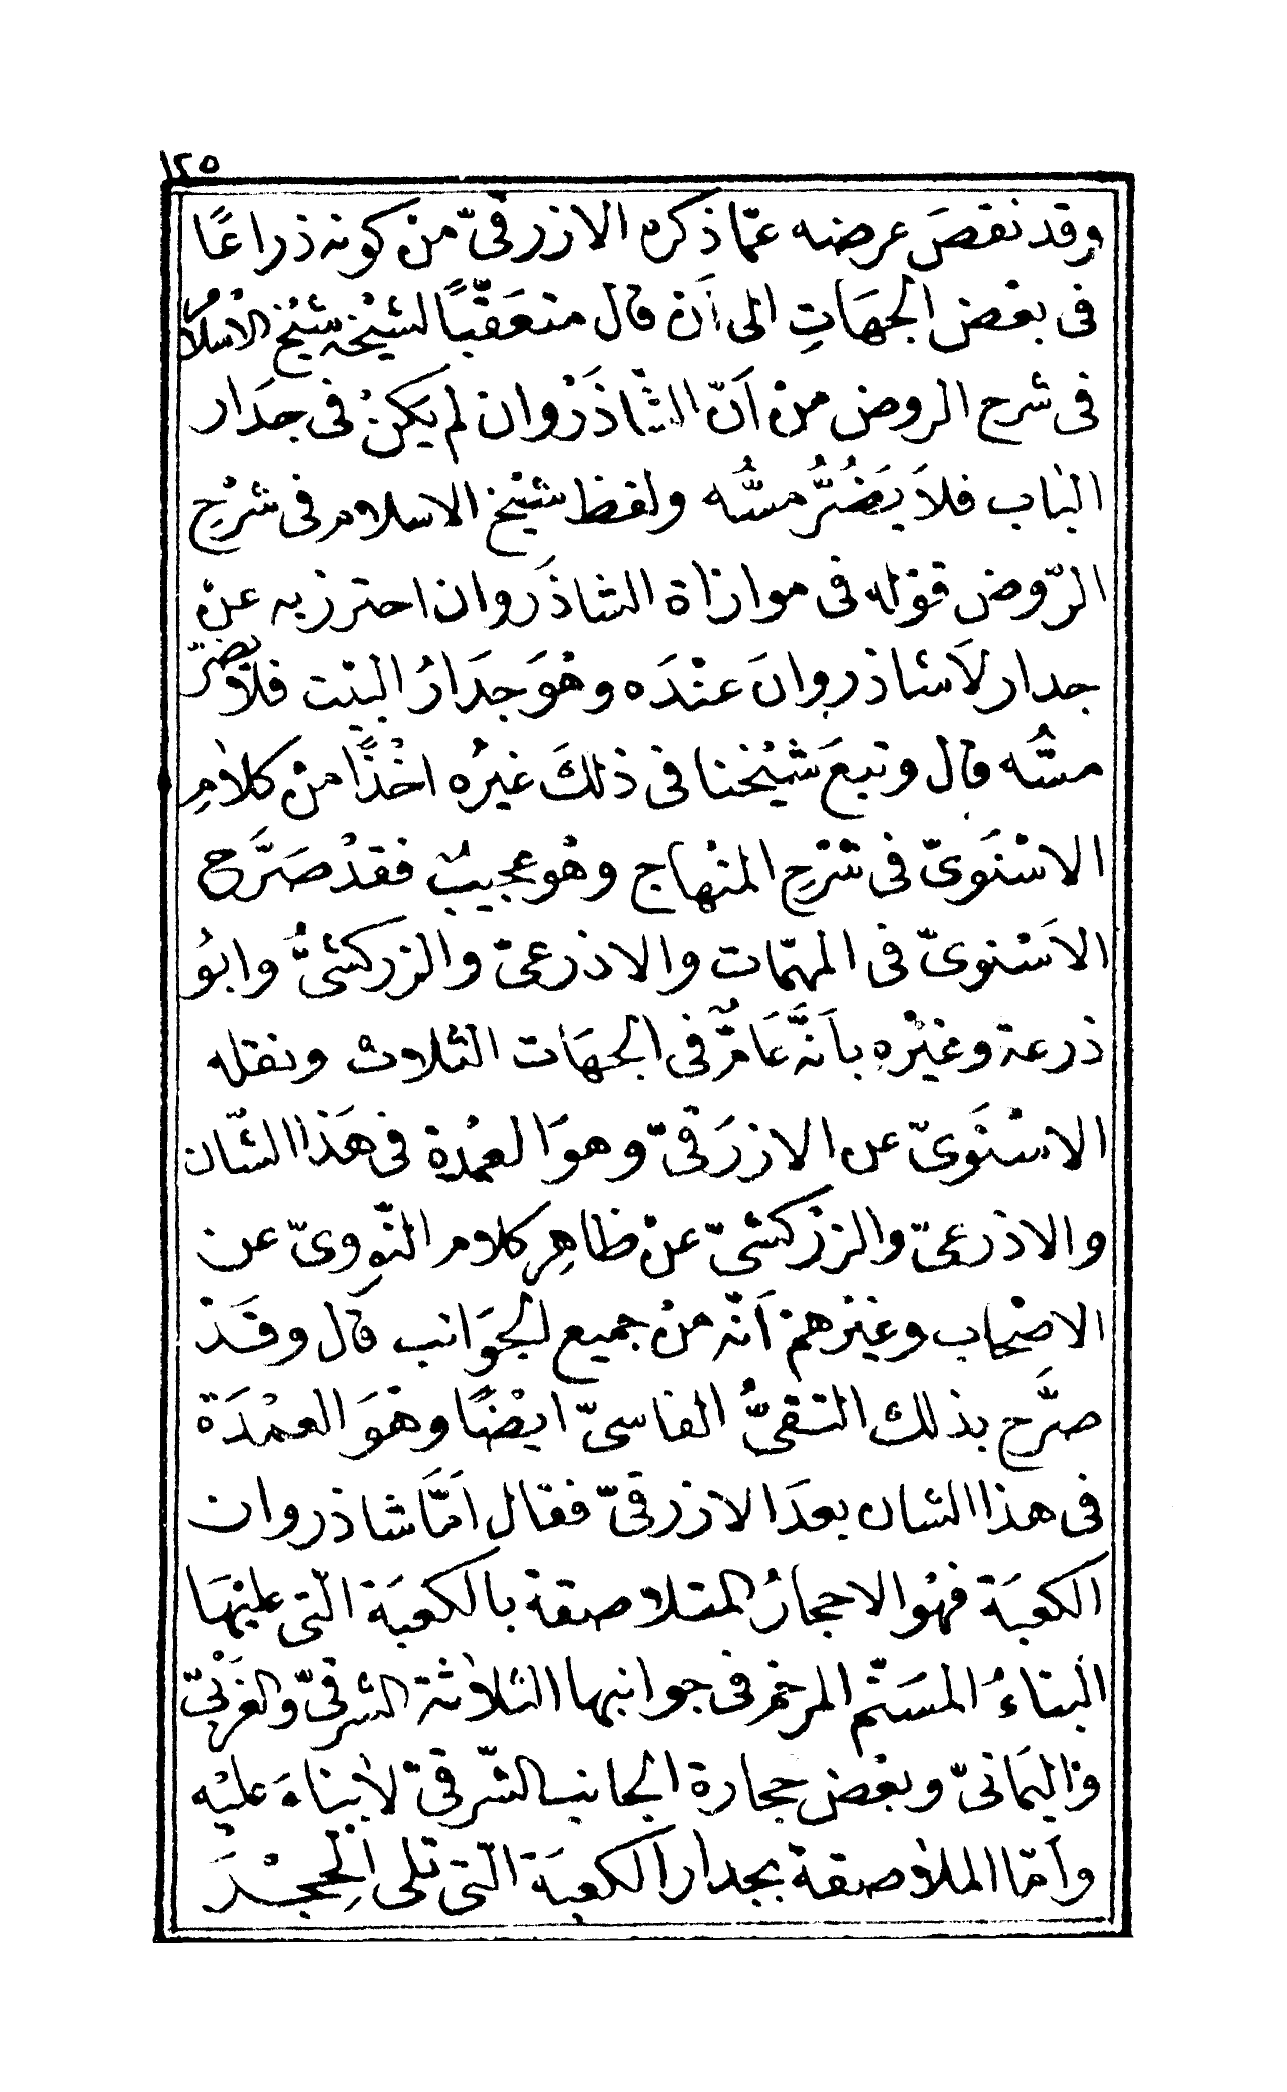 ١٢٥
وقد نقصَ عرضه عمّا ذكره الازرقىّ منْ كونه ذراعًا
فى بعْض الجهَاتِ الى أَن قال متعَقّبًا لشيْخه شيْخ الاسلام
فى شرح الروض منْ اَنّ الشّاذَرْوان لم يَكنْ فى جدَار
البَاب فلاَ يَضُرُّ مسُّه ولفظ شيْخ الاسلام فى شرْح
الرّوض قوْله فى موازاة الشاذَروان احترز به عنْ
جدار لاَ شاذروانَ عنْدَه وهْوَ جدَارُ البيْت فلا يضرّ
مسُّه قال وتبعَ شيْخنا فى ذلكَ غيرُه اخْذًا منْ كلامِ
الاسْنَوىّ فى شرْح المنْهاج وهْو عجيبٌ فقدْ صَرَّح
الاَسْنوىّ فى المهمّات والاذرعىّ والزركشىُّ وابوُ
ذرعة وغيْره بأَنَّه عَامٌّ فى الجهَات الثلاث ونقله
الاسْنَوىّ عن الازرَقىّ وهوَ العمْدة فى هَذا الشّان
والاذرعىّ والزرْكشىّ عنْ ظاهِر كلام النّووىّ عن
الاصْحاب وغيْرهمْ اَنّه منْ جميع الجوَانب قال وقَدْ
صرَّح بذلك التقىُّ الفاسىّ ايضًا وهْوَ العمْدَة
فى هذا الشان بعدَ الازرقىّ فقال اَمَّا شاذروان
الكعبَة فهْو الاحجارُ المتلاصقة بالكعبَة الّتى عليْهَا
البناءُ المسَنّم المرخم فى جوانبها الثلاثة الشرقىّ والغرْبىّ
واليَمانىّ وبعْض حجارة الجانب الشّرقىّ لابناءَ عليْه
وأمّا الملاصقة بجدار الكعبَة الّتى تلى الِحجْرَ